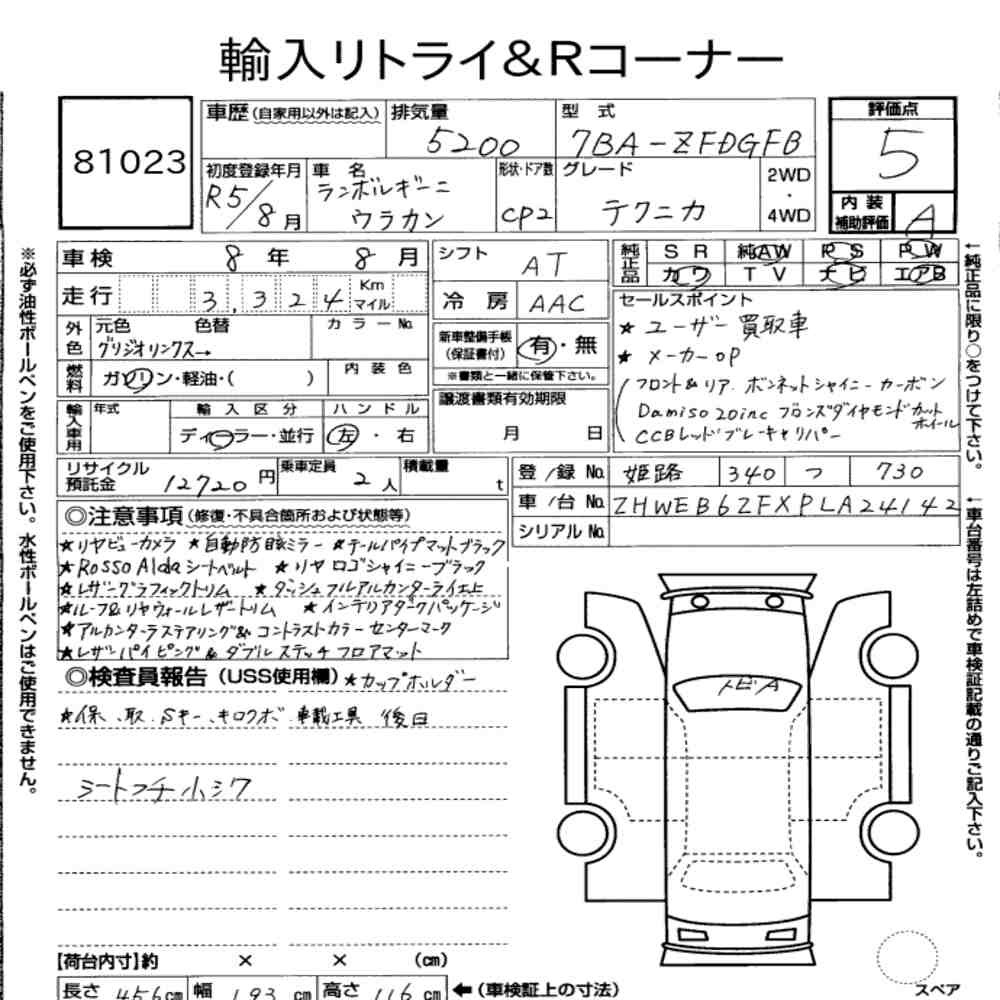 輸入リトライ&Rコーナー
81023
車歴 (自家用以外は記入) 排気量 5200 型式 7BA-ZFDGFB
評価点 5
初度登録年月 R5/8月 車名 ランボルギーニ ウラカン
形状・ドア数 CP2 グレード テクニカ 2WD・4WD
内装補助評価 A
車検 8年 8月
走行 3,324 Km マイル
シフト AT
冷房 AAC
純正品 SR 純AW PS PW
カワ TV ナビ エアB
外色 元色 色替 カラーNo.
グリジオリンクス→
燃料 ガソリン・軽油・( ) 内装色
新車整備手帳 (保証書付) 有・無
※書類と一緒に保管下さい。
セールスポイント
★ ユーザー買取車
★ メーカーOP
(フロント&リア.ボンネットシャイニーカーボン
Damiso 20inc ブロンズダイヤモンドカットホイール
CCBレッドブレーキャリパー
輸入車用 年式 輸入区分 ディーラー・並行 ハンドル 左・右
譲渡書類有効期限 月 日
リサイクル預託金 12720円 乗車定員 2人 積載量 t
登/録 No. 姫路 340 つ 730
車/台 No. ZHWEB6ZFXPLA24142
シリアル No.
◎注意事項 (修復・不具合箇所および状態等)
★リヤビューカメラ ★自動防眩ミラー ★テールパイプマットブラック
★Rosso Aldaシートベルト ★リヤロゴシャイニーブラック
★レザーグラフィックトリム ★ダッシュフルアルカンターライエ上
★ルーフ&リヤウォールレザートリム ★インテリアダークパッケージ
★アルカンターラステアリング&コントラストカラーセンターマーク
★レザーパイピング&ダブルステッチフロアマット
◎検査員報告 (USS使用欄) ★カップホルダー
★保、取.Sキー.キロクボ.車載工具 後日
シートフチ小シワ
トビA
【荷台内寸】約 × × (cm)
長さ 456cm 幅 193cm 高さ 116cm ← (車検証上の寸法)
スペア
※必ず油性ボールペンをご使用下さい。水性ボールペンはご使用できません。
←純正品に限り○をつけて下さい。
←車台番号は左詰めで車検証記載の通りご記入下さい。